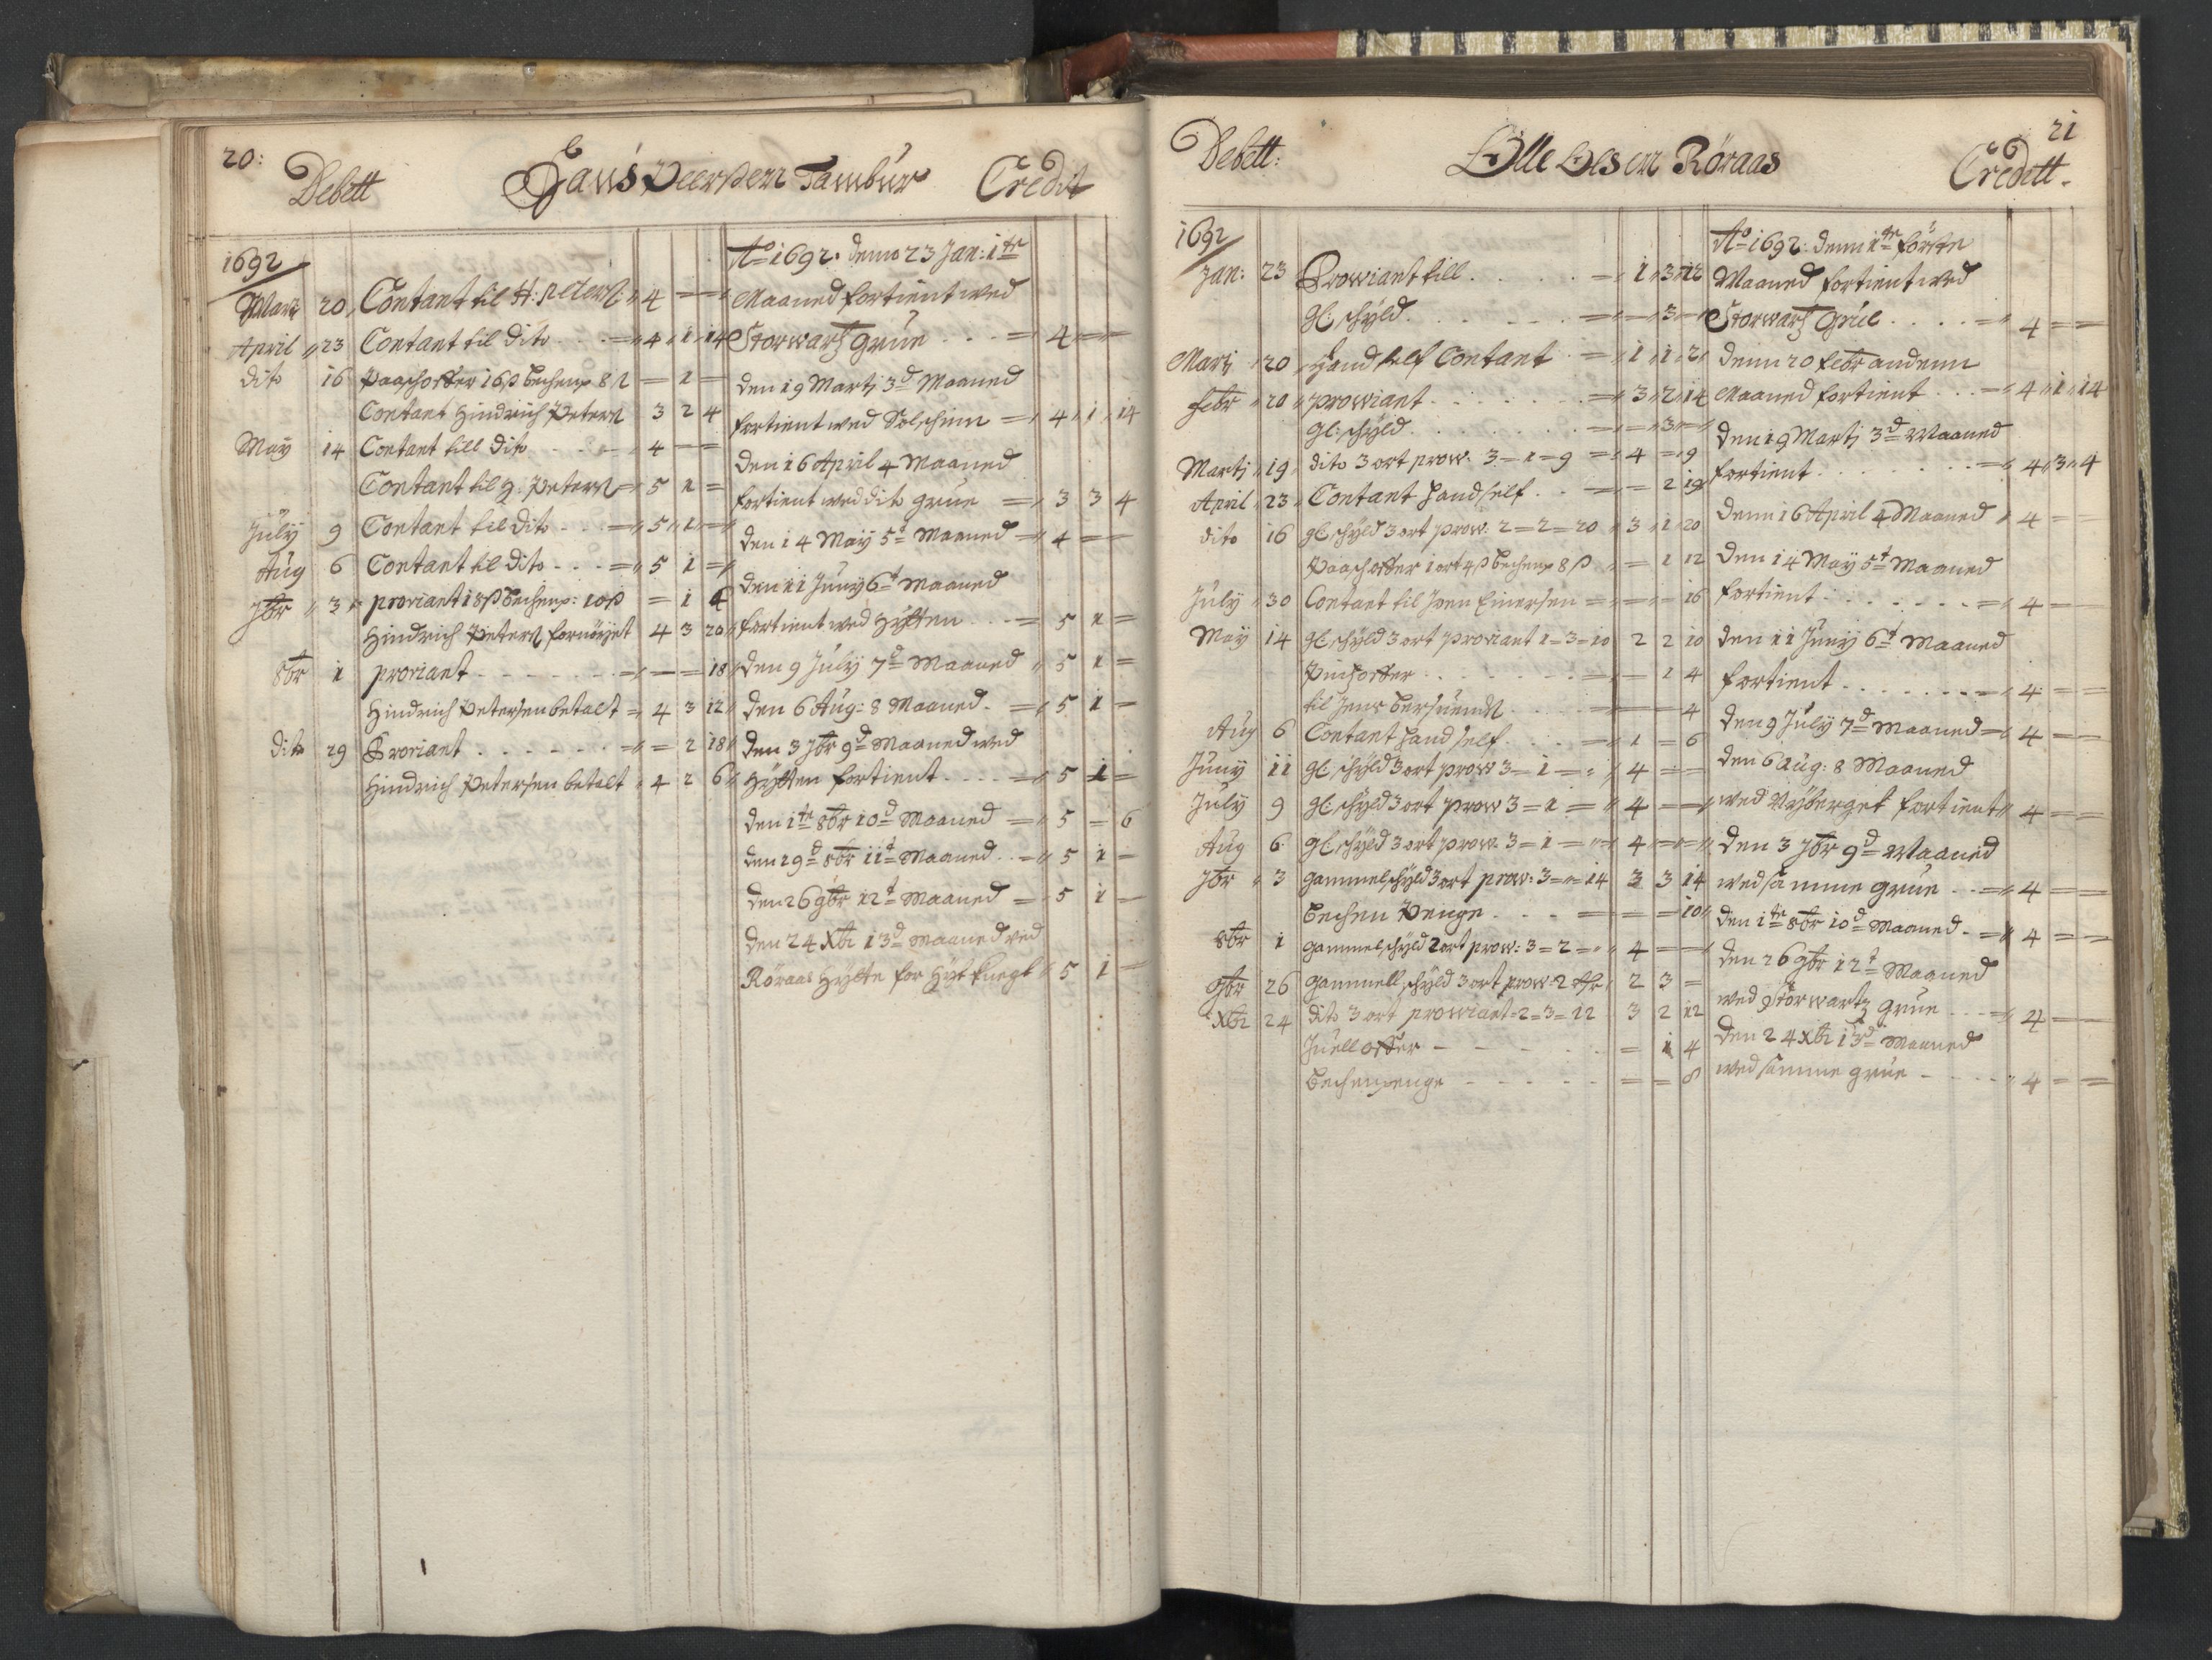 20:
Debett Hans Peersen Tambur Credit
1692
Martj 20 Contant til H: Peters 4 = =
April 23 Contant til dito 4 1 14
dito 16 Paaschoffer 16 β bechenp 8 β = 1 =
Contant Hindrich Peters 3 2 4
May 14 Contant till dito 4 = =
Contant til H: Peters 5 1 =
July 9 Contant til dito 5 1 =
Aug 6 Contant til dito 5 1 =
7br 3 proviant 18 β bechenp: 10 β = 1 4
Hindrich Peters fornøyet 4 3 20
8br 1 proviant = = 18
Hindrich Petersen betalt 4 3 12
dito 29 Proviant = 2 18
Hindrich Petersen betalt 4 2 6
Ao 1692. denn 23 Jan: 1te
Maaned fortient wed
Storwartz Grue 4 = =
den 19 Martj 3d Maaned
fortient wed Solschinn 4 1 14
den 16 April 4 Maaned
fortient wed dito grue 3 3 4
den 14 May 5t Maaned 4 = =
den 11 Juny 6t Maaned
fortient wed Hytten 5 1 =
den 9 July 7d Maaned 5 1 =
den 6 Aug: 8 Maaned 5 1 =
den 3 7br 9d Maaned wed
Hytten fortient 5 1 =
den 1te 8br 10d Maaned 5 = 6
den 29d 8br 11t Maaned 5 1 =
den 26 9br 12t Maaned 5 1 =
den 24 Xbr 13d Maaned ved
Røraas Hytte for Hyt knegt 5 1 =
21
Debett: Olle Olsen Røraas Credett.
1692
Jan: 23 Prowiant till 1 3 12
gl: schyld = 3 =
Martj 20 Hand self Contant 1 1 2
febr 20 prowiant 3 2 14
gl: schyld = 3 =
Martj 19 dito 3 ort prow: 3 = 1 = 9 4 = 9
April 23 Contant hand self = 2 19
dito 16 gl schyld 3 ort prow: 2 = 2 = 20 3 1 20
Paaschoffer 1 ort 4 β bechenp 8 β = 1 12
July 30 Contant til Joen Einersen = = 16
May 14 gl schyld 3 ort proviant 1 = 3 = 10 2 2 10
Pindsoffer = 1 4
til Jens = = 4
Aug 6 Contant hand self 1 = 6
Juny 11 gl: schyld 3 ort prow 3 = 1 = 4 = =
July 9 gl: schyld 3 ort prow 3 = 1 = 4 = =
Aug 6 gl schyld 3 ort prow. 3 = 1 = 4 = =
7br 3 gammel schyld 3 ort prow: 3 = = 14 3 3 14
bechen Penge = = 10
8br 1 gammel schyld 2 ort prow: 3 = 2 = 4 = =
9br 26 gammell schyld 3 ort prow 2 2 3 =
Xbr 24 dito 3 ort prowiant = 2 = 3 = 12 3 2 12
Juell offer = 1 4
bechenpenge = = 8
Ao 1692: denn 1te førsten
Maaned fortient wed
Storwartz Grue 4 = =
denn 20 febr andenn
Maaned fortient 4 1 14
den 19 Martj 3d Maaned
fortient 4 3 4
denn 16 April 4 Maaned 4 = =
den 14 May 5t Maaned
fortient 4 = =
den 11 Juny 6t Maaned
fortient 4 = =
den 9 July 7d Maaned 4 = =
den 6 aug: 8 Maaned
wed Nyberget fortient 4 = =
den 3 7br 9d Maaned
wed samme grue 4 = =
den 1te 8br 10d Maaned 4 = =
den 26 9br 12t Maaned
wed Storwartz grue 4 = =
den 24 Xbr 13d Maaned
wed samme grue 4 = =